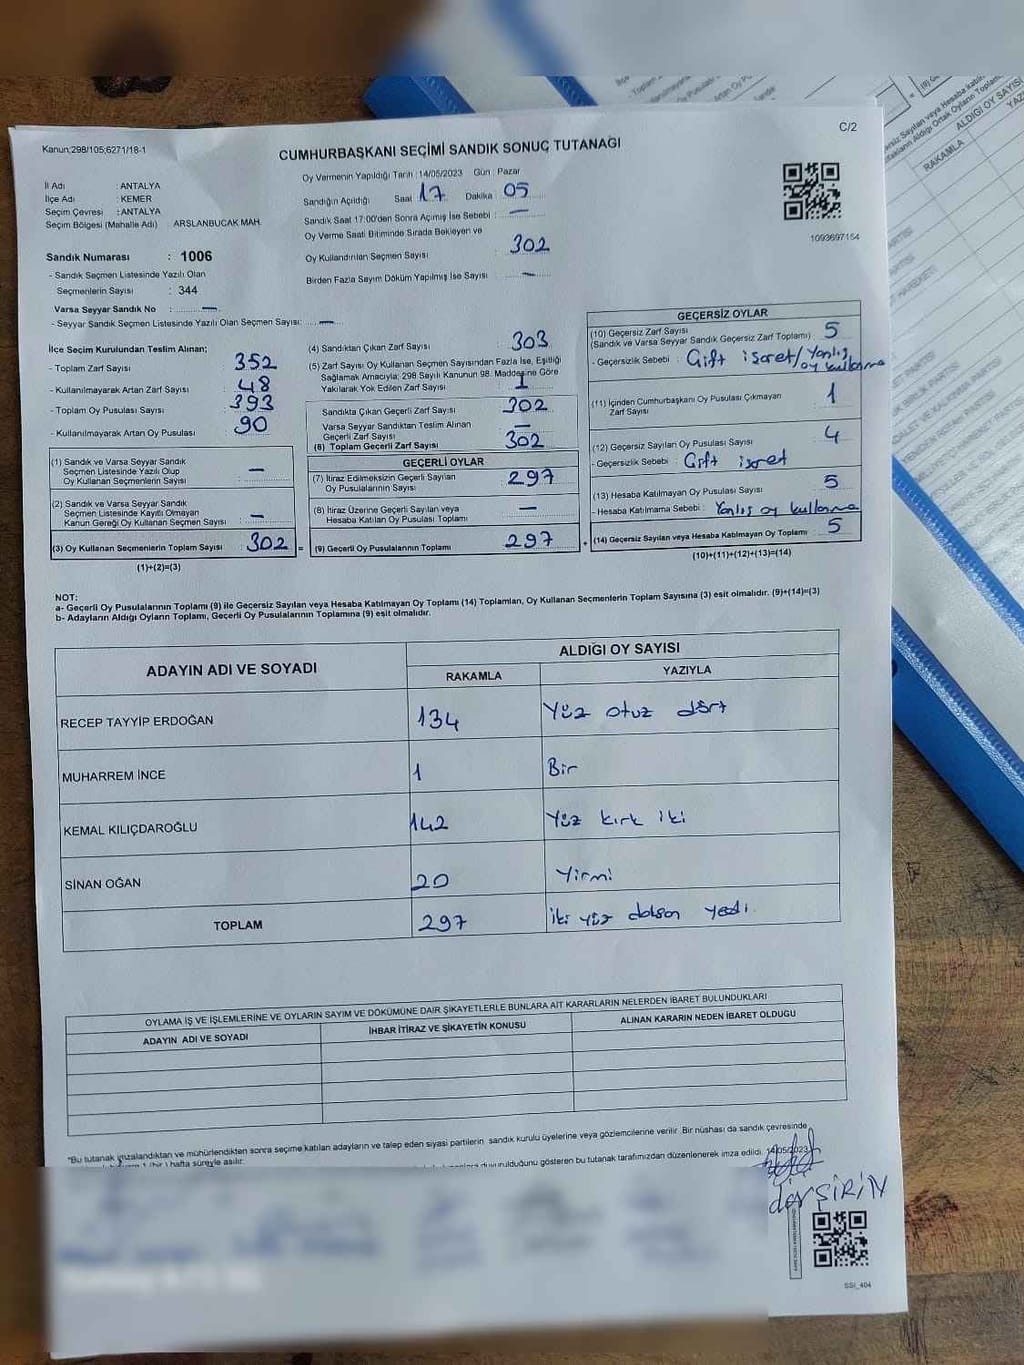 C/2
Kanun;298/105;6271/18-1
CUMHURBAŞKANI SEÇİMİ SANDIK SONUÇ TUTANAĞI
İl Adı : ANTALYA
İlçe Adı : KEMER
Seçim Çevresi : ANTALYA
Seçim Bölgesi (Mahalle Adı) : ARSLANBUCAK MAH.
Oy Vermenin Yapıldığı Tarih : 14/05/2023 Gün : Pazar
Sandığın Açıldığı Saat 17 Dakika 05
Sandık Saat 17:00'den Sonra Açımış İse Sebebi : —
Oy Verme Saati Bitiminde Sırada Bekleyen ve
Oy Kullandırılan Seçmen Sayısı : 302
Birden Fazla Sayım Döküm Yapılmış İse Sayısı : —
1093697154
Sandık Numarası : 1006
- Sandık Seçmen Listesinde Yazılı Olan
Seçmenlerin Sayısı : 344
Varsa Seyyar Sandık No : —
- Seyyar Sandık Seçmen Listesinde Yazılı Olan Seçmen Sayısı: —
İlçe Seçim Kurulundan Teslim Alınan;
- Toplam Zarf Sayısı : 352
- Kullanılmayarak Artan Zarf Sayısı : 48
- Toplam Oy Pusulası Sayısı : 393
- Kullanılmayarak Artan Oy Pusulası : 90
(1) Sandık ve Varsa Seyyar Sandık
Seçmen Listesinde Yazılı Olup
Oy Kullanan Seçmenlerin Sayısı : —
(2) Sandık ve Varsa Seyyar Sandık
Seçmen Listesinde Kayıtlı Olmayan
Kanun Gereği Oy Kullanan Seçmen Sayısı : —
(3) Oy Kullanan Seçmenlerin Toplam Sayısı : 302 =
(1)+(2)=(3)
(4) Sandıktan Çıkan Zarf Sayısı : 303
(5) Zarf Sayısı Oy Kullanan Seçmen Sayısından Fazla İse, Eşitliği
Sağlamak Amacıyla; 298 Sayılı Kanunun 98. Maddesine Göre
Yakılarak Yok Edilen Zarf Sayısı : 1
Sandıkta Çıkan Geçerli Zarf Sayısı : 302
Varsa Seyyar Sandıktan Teslim Alınan
Geçerli Zarf Sayısı :
(6) Toplam Geçerli Zarf Sayısı : 302
GEÇERLİ OYLAR
(7) İtiraz Edilmeksizin Geçerli Sayılan
Oy Pusulalarının Sayısı : 297
(8) İtiraz Üzerine Geçerli Sayılan veya
Hesaba Katılan Oy Pusulası Toplamı : —
(9) Geçerli Oy Pusulalarının Toplamı : 297 +
GEÇERSİZ OYLAR
(10) Geçersiz Zarf Sayısı
(Sandık ve Varsa Seyyar Sandık Geçersiz Zarf Toplamı) : 5
- Geçersizlik Sebebi : Çift işaret/Yanlış oy kullanma
(11) İçinden Cumhurbaşkanı Oy Pusulası Çıkmayan
Zarf Sayısı : 1
(12) Geçersiz Sayılan Oy Pusulası Sayısı : 4
- Geçersizlik Sebebi : Çift işaret
(13) Hesaba Katılmayan Oy Pusulası Sayısı : 5
- Hesaba Katılmama Sebebi : Yanlış oy kullanma
(14) Geçersiz Sayılan veya Hesaba Katılmayan Oy Toplamı : 5
(10)+(11)+(12)+(13)=(14)
NOT:
a- Geçerli Oy Pusulalarının Toplamı (9) ile Geçersiz Sayılan veya Hesaba Katılmayan Oy Toplamı (14) Toplamları, Oy Kullanan Seçmenlerin Toplam Sayısına (3) eşit olmalıdır. (9)+(14)=(3)
b- Adayların Aldığı Oyların Toplamı, Geçerli Oy Pusulalarının Toplamına (9) eşit olmalıdır.
ADAYIN ADI VE SOYADI ALDIĞI OY SAYISI
RAKAMLA YAZIYLA
RECEP TAYYİP ERDOĞAN 134 Yüz otuz dört
MUHARREM İNCE 1 Bir
KEMAL KILIÇDAROĞLU 142 Yüz kırk iki
SİNAN OĞAN 20 Yirmi
TOPLAM 297 iki yüz doksan yedi.
OYLAMA İŞ VE İŞLEMLERİNE VE OYLARIN SAYIM VE DÖKÜMÜNE DAİR ŞİKAYETLERLE BUNLARA AİT KARARLARIN NELERDEN İBARET BULUNDUKLARI
ADAYIN ADI VE SOYADI İHBAR İTİRAZ VE ŞİKAYETİN KONUSU ALINAN KARARIN NEDEN İBARET OLDUĞU
*Bu tutanak imzalandıktan ve mühürlendikten sonra seçime katılan adayların ve talep eden siyasi partilerin sandık kurulu üyelerine veya gözlemcilerine verilir. Bir nüshası da sandık çevresinde
1 (bir) hafta süreyle asılır.
duyurulduğunu gösteren bu tutanak tarafımızdan düzenlenerek imza edildi. 14/05/2023
ŞİRİN
SSİ_404
RAKAMLA
ALDIĞI OY SAYISI